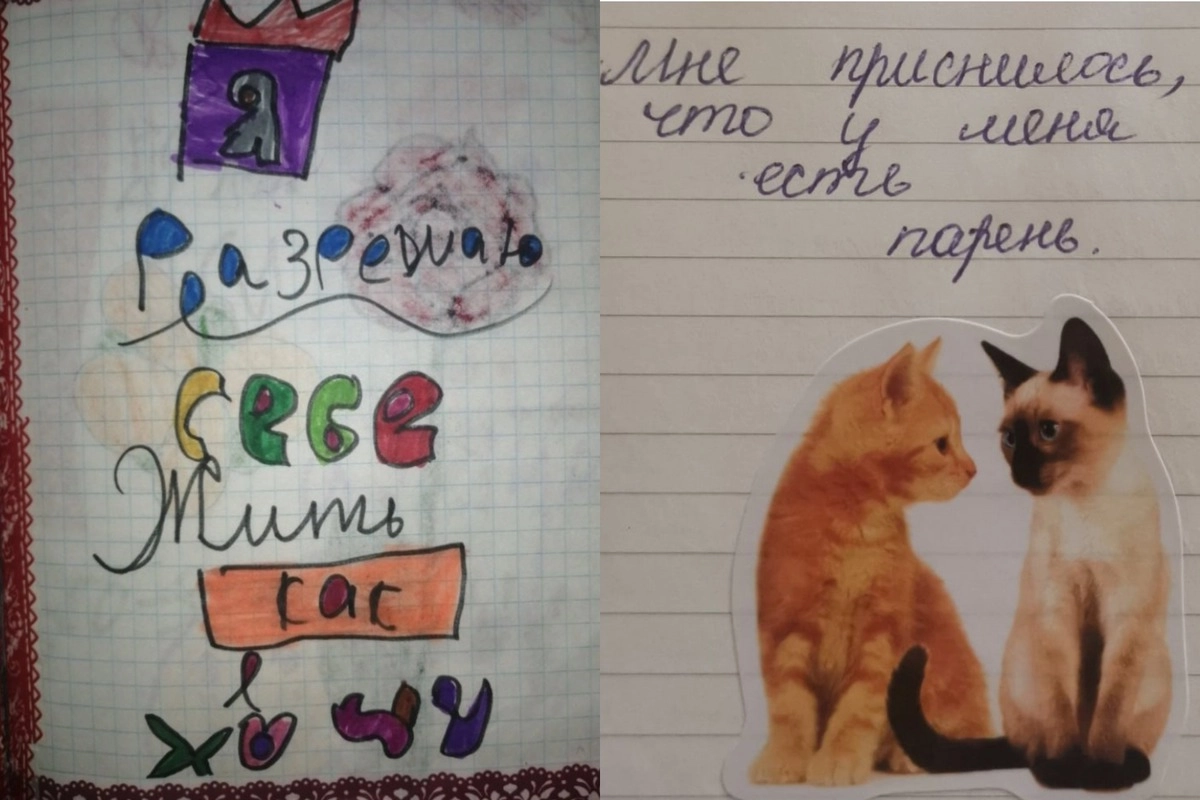 Я
Разрешаю
себе
Жить
как
хочу
Мне приснилось,
что у меня
есть
парень.